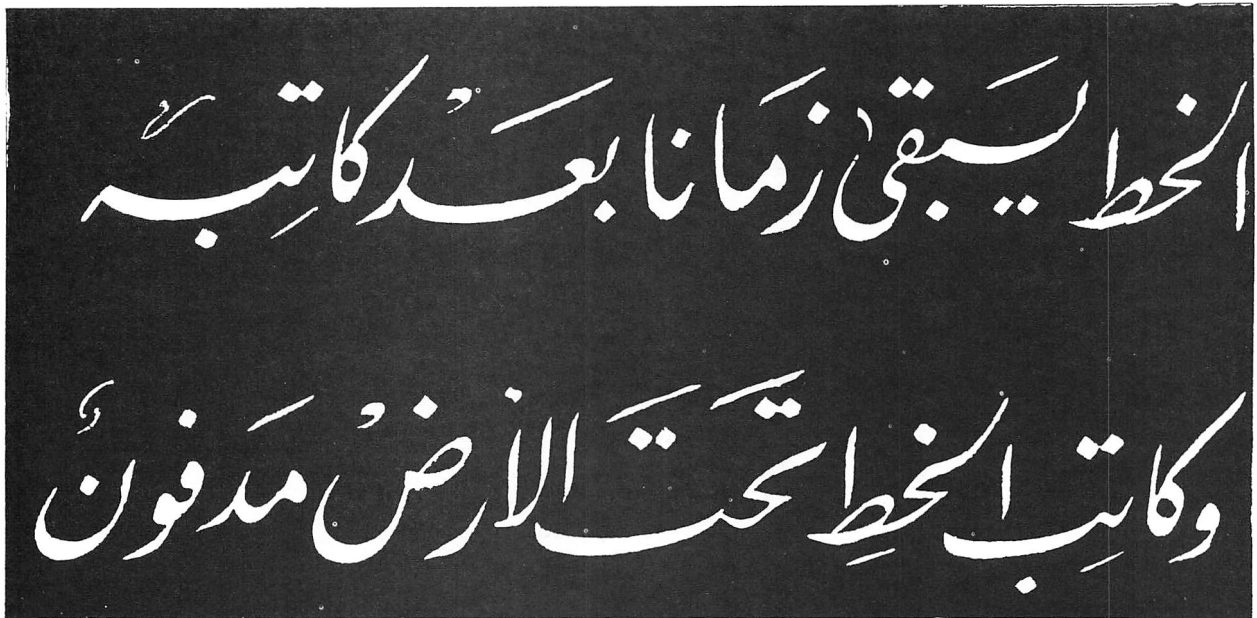 الخط يَبقىٰ زمَانا بعَدْ كاتِبهُ
وكاتِب الخطِ تحَتَ الأرضْ مَدفونٌ